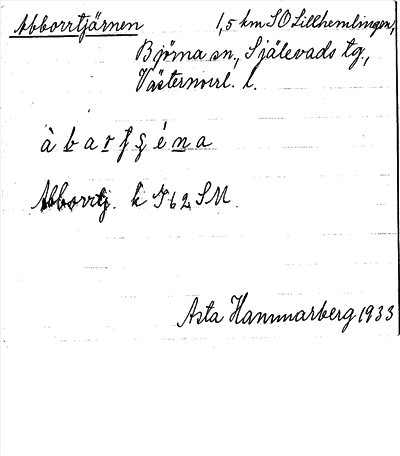 Abborrtjärnen 1,5 km SO Lillhemlingen,
Björna sn., Själevads tg.,
Västernorrl. l.
Abborrtj. k
Asta Hammarberg 1933